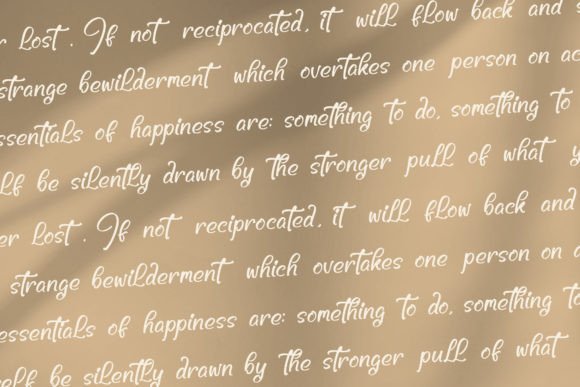 r lost. If not reciprocated, it will flow back and s
strange bewilderment which overtakes one person on ac
ssentials of happiness are: something to do, something to
lf be silently drawn by the stronger pull of what y
er lost. If not reciprocated, it will flow back and
strange bewilderment which overtakes one person on a
essentials of happiness are: something to do, something to
elf be silently drawn by the stronger pull of what